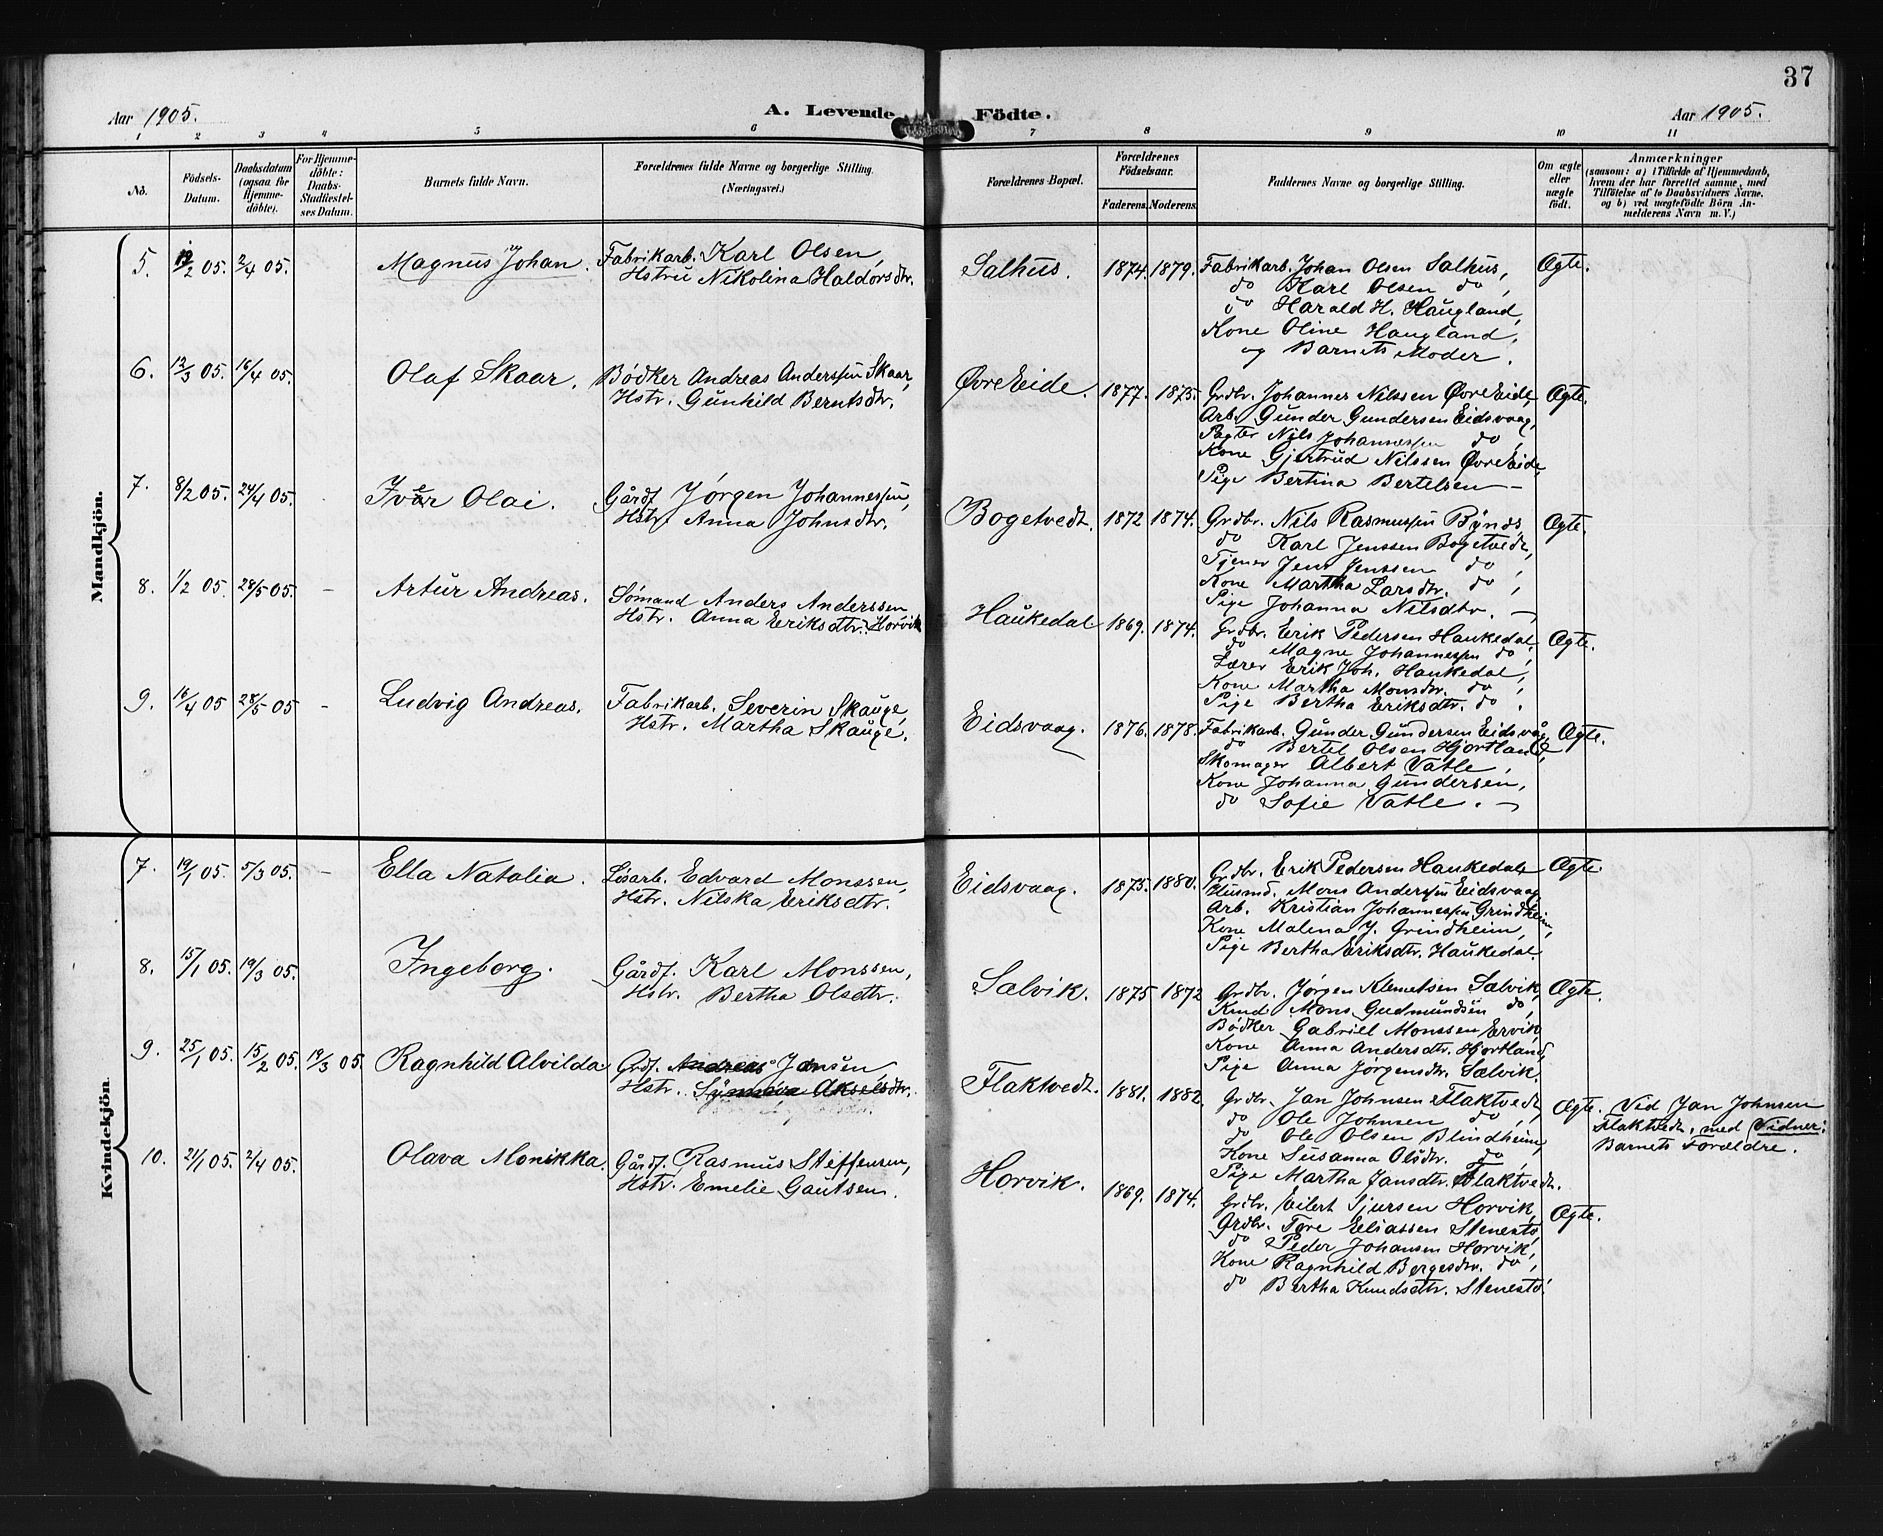 37
Aar 1905.
A. Levende Födte.
Aar 1905.
1 2 3 4 5 6 7 8 9 10 11
No.
Födsels-Datum.
Daabsdatum (ogsaa for Hjemme-döbte).
For Hjemme-döbte: Daabs-Stadfæstel-ses Datum.
Barnets fulde Navn.
Forældrenes fulde Navne og borgerlige Stilling. (Næringsvei.)
Forældrenes Bopæl.
Forældrenes Födselsaar.
Faderens. Moderens.
Faddernes Navne og borgerlige Stilling.
Om ægte eller uægte födt.
Anmærkninger
(saasom: a) i Tilfælde af Hjemmedaab, hvem der har forrettet samme, med Tilföielse af to Daabsvidners Navne. og b) ved uægtefödte Börn Anmelderens Navn m. V.)
Mandkjön.
5. 2/4 05. Magnus Johan. Fabrikarb. Karl Olsen,
Hstru Nikolina Haldorsdtr.
Salhus. 1874. 1879. Fabrikarb. Johan Olsen Salhus, Ægte.
do Karl Olsen do,
do Harald H. Haugland,
Kone Oline Haugland,
og Barnets Moder.
6. 12/3 05. 16/4 05. Olaf Skaar. Bödker Andreas Anderssen Skaar,
Hstr. Gunhild Berntsdtr.
Øvre Eide. 1877. 1875. Grdbr. Johannes Nilssen Øvre Eide, Ægte.
Arb. Gunder Gundersen Eidsvaag,
Nils Johannessen do,
Kone Gjertrud Nilssen Øvre Eide,
Pige Bertina Bertelsen —
7. 8/2 05. 24/4 05. Olai. Gårdf. Jørgen Johannessen,
Hstr. Anna Johnsdtr.
Bogetvedt. 1872 1874. Grdbr. Nils Rasmussen Ægte.
do Karl Jenssen Bogetvedt,
Tjener Jens Jenssen do,
Kone Martha Larsdtr. do,
Pige Johanna Nilsdtr. —
8. 1/2 05. 28/5 05. – Artur Andreas. Sømand Anders Anderssen
Hstr. Anna Eriksdtr. Horvik
Haukedal 1869. 1874. Grdbr. Erik Pedersen Haukedal, Ægte.
do Magne Johannessen do,
Lærer Erik Joh. Haukedal,
Kone Martha Monsdtr. do,
Pige Bertha Eriksdtr. do.
9. 16/4 05 28/5 05 – Ludvig Andreas. Fabrikarb. Severin Skauge,
Hstr. Martha Skauge.
Eidsvaag. 1876. 1878. Fabrikarb. Gunder Gundersen Eidsvåg, Ægte.
do Bertel Olsen Hjortland,
Skomager Albert Vatle,
Kone Johanna Gundersen,
do Sofie Vatle. —
Kvindekjön.
7. 19/1 05. 5/3 05. – Ella Natalia. Løsarb. Edvard Monssen,
Hstr. Nilska Eriksdtr.
Eidsvaag. 1875. 1880. Grdbr. Erik Pedersen Haukedal, Ægte.
Husmd. Mons Anderssen Eidsvaag
Arb. Kristian Johannessen Grindheim,
Kone Malena J. Grindheim,
Pige Bertha Eriksdtr. Haukedal
8. 15/1 05. 19/3 05. Ingeborg. Gårdf. Karl Monssen,
Hstr. Bertha Olsdtr.
Sælvik. 1875 1872 Grdbr. Jørgen Klemetsen Sælvik, Ægte.
Knud Mons Gudmundsen do,
Bödker Gabriel Monssen Ervik,
Kone Anna Andersdtr. Hjortland,
Pige Anna Jørgensdtr. Sælvik.
9. 25/1 05. 15/2 05. 19/3 05. Ragnhild Alvilda Grdf. Andreas Jansen,
Hstr. Synneva Akselsdtr.
Flaktvedt. 1881. 1882. Grdbr. Jan Johnsen Flaktvedt, Ægte. Ved Jan Johnsen
do Ole Johnsen do, Flaktvedt, med Vidner:
do Ole Olsen Blindheim, Barnets Forældre.
Kone Susanna Olsdtr. do,
Pige Martha Jansdtr. Flaktvedt.
10. 21/1 05. 2/4 05. Olava Monikka. Gårdf. Rasmus Steffensen,
Hstr. Emelie Gautsen.
Horvik. 1869. 1874. Grdbr. Eilert Sjursen Horvik, Ægte.
Grdbr. Tore Eliassen Stenestø,
do Peder Johansen Horvik,
Kone Ragnhild Børgesdtr. do,
do Bertha Knudsdtr. Stenestø.